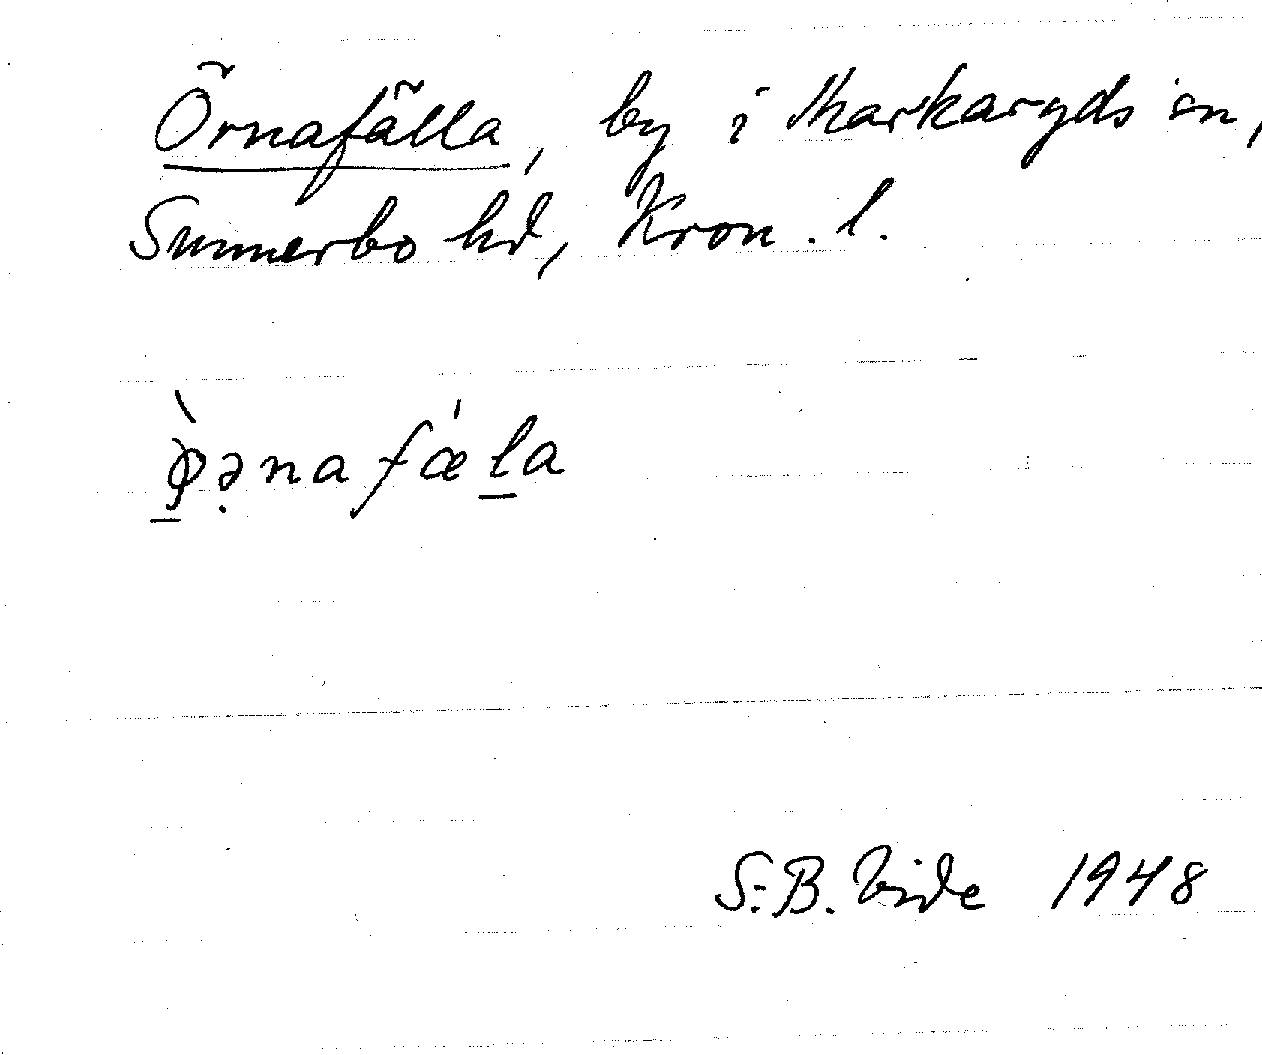 Örnafälla, by i Markaryds sn,
Sunnerbo hd, Kron. l.
 φ̱̀ə̣nafǽḻa
S:B. Vide 1948